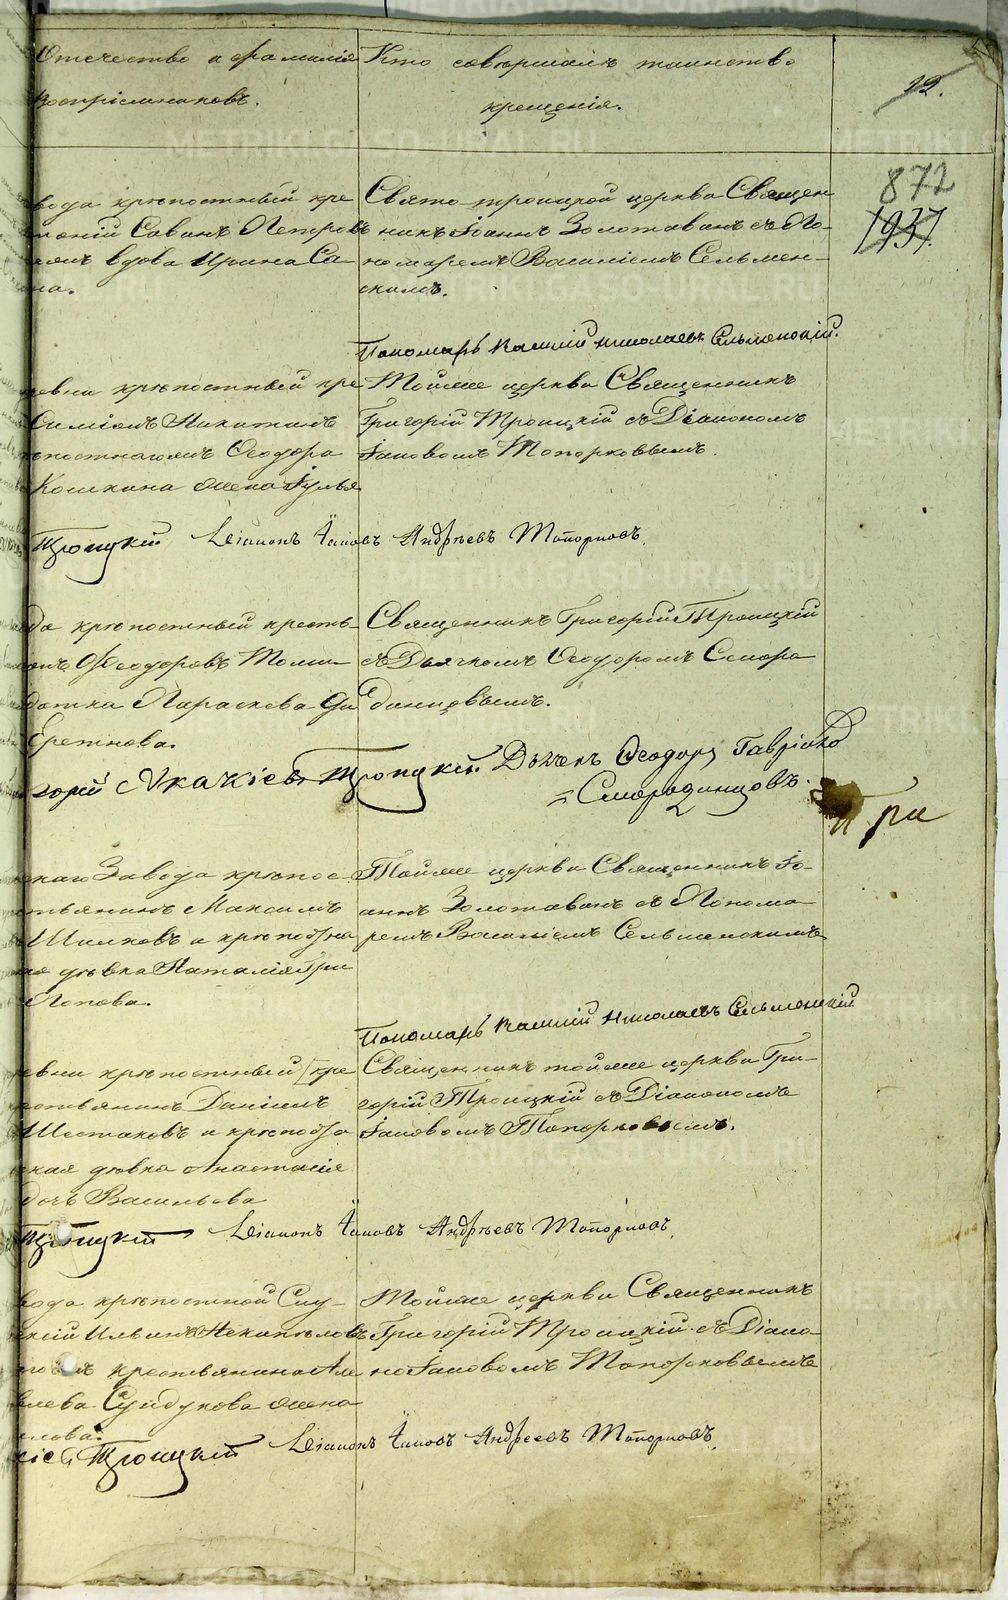 Отчество и фамилія
воспріемниковъ.
Кто совершалъ таинство
крещенія.
22.
872
1937.
вода крѣпостный кре
Саванъ Петровъ
вдова Ирина Са
на.
Свято троицкой церкви Священ
никъ Іоаннъ Золотавинъ съ По-
номаремъ Василіемъ Сельмен-
скимъ.
Пономарь Василий Николаевъ Сельменский.
евни крѣпостный кре
Симеонъ Никитинъ
Ѳеодора
Кошкина жена Іулья
Тойже церкви Священникъ
Григорій Троицкій съ Діакономъ
Іаковомъ Топорковымъ.
Троицкий Діаконъ Іаковъ Андрѣевъ Топорковъ.
да крѣпостный кресть-
Ѳеодоровъ
Параскева
Еретнова.
Священникъ Григорій Троицкій
съ Дьячкомъ Ѳеодоромъ Сморо
динцовымъ.
горий Акакіевъ Троицкій Дьячекъ Ѳеодоръ
Смородинцовъ.
три
скаго Завода крѣпос-
стьянинъ Максимъ
Шилковъ и крѣпостна
дѣвка Наталія Гри
Попова.
Тойже церкви Священникъ Іо-
аннъ Золотавинъ съ Понома
ремъ Василіемъ Сельменскимъ
Пономарь Василий Николаевъ Сельменский
евни крѣпостный кре
стьянинъ Даніилъ
Шестаковъ и крѣпост
ская дѣвка Анастасія
дочь Васильева
Священникъ тойже церкви Гри-
горій Троицкій съ Діакономъ
Іаковомъ Топорковымъ.
Троицкий Діаконъ Іаковъ Андрѣевъ Топорковъ.
вода крѣпостной Слу-
Ильинъ
крестьянина Але
жена
Тойже церкви Священникъ
Григорій Троицкій съ Діако
номъ Іаковомъ Топорковымъ
Троицкий Діаконъ Іаковъ Андреевъ Топорковъ.
METRIKI.GASO-URAL.RU